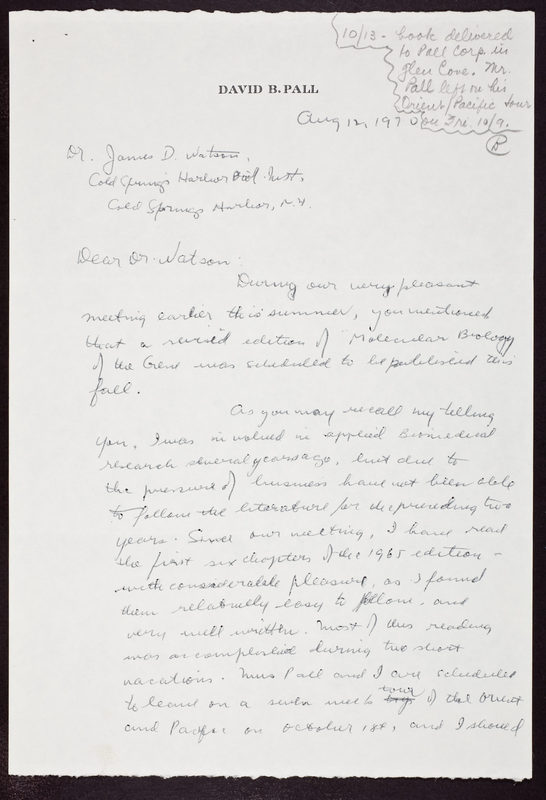 10/13 - book delivered
to Pall Corp. in
Glen Cove. Mr.
Pall left on his
Orient/Pacific tour
on Fri. 10/9.
DAVID B. PALL
Aug 12, 1970
Dr. James D. Watson,
Cold Springs Harbor Biol. Inst.
Cold Springs Harbor, N.Y.
Dear Dr. Watson:
During our very pleasant
meeting earlier this summer, you mentioned
that a revised edition of "Molecular Biology
of the Gene was scheduled to be published this
fall.
As you may recall my telling
you, I was involved in applied biomedical
research several years ago, but due to
the pressure of business have not been able
to follow the literature for the preceding two
years. Since our meeting, I have read
the first six chapters of the 1965 edition -
with considerable pleasure, as I found
them relatively easy to follow, and
very well written. Most of this reading
was accomplished during two short
vacations. Mrs Pall and I are scheduled
to leave on a seven weeks tour of the Orient
and Pacific on October 1st, and I should